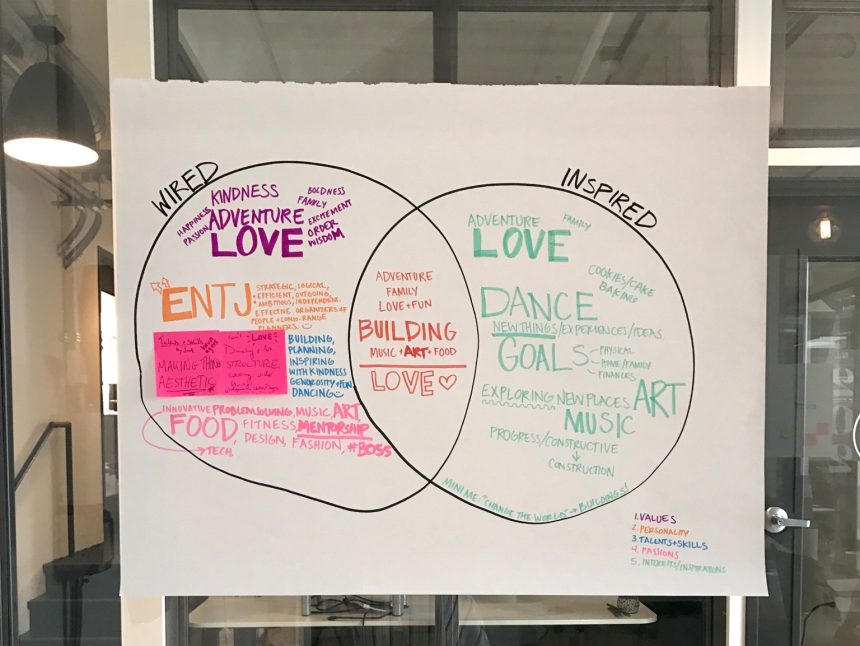 WIRED
KINDNESS
BOLDNESS
FAMILY
HAPPINESS
PASSION
ADVENTURE
EXCITEMENT
LOVE
ORDER
WISDOM
ENTJ
STRATEGIC, LOGICAL,
+ EFFICIENT, OUTGOING,
+ AMBITIOUS, INDEPENDENT.
EFFECTIVE ORGANIZERS OF
PEOPLE + LONG-RANGE
PLANNERS.
MAKING THINGS
AESTHETIC
LOVE
STRUCTURE
BUILDING,
PLANNING,
INSPIRING
WITH KINDNESS
GENOROSITY + FUN
DANCING
INNOVATIVE PROBLEM SOLVING, MUSIC ART,
FOOD, FITNESS, MENTORSHIP
DESIGN, FASHION, #BOSS
TECH,
ADVENTURE
FAMILY
LOVE + FUN
BUILDING
MUSIC + ART + FOOD
LOVE ♡
INSPIRED
ADVENTURE
FAMILY
LOVE
COOKIES/CAKE
BAKING
DANCE
NEW THINGS/EXPERIENCES/IDEAS.
GOALS
PHYSICAL
HOME/FAMILY
FINANCES
EXPLORING NEW PLACES ART
MUSIC
PROGRESS/CONSTRUCTIVE
↓
CONSTRUCTION
MINI ME: "CHANGE THE WORLD" → BUILDINGS!
1. VALUES
2. PERSONALITY
3. TALENTS + SKILLS
4. PASSIONS
5. INTERESTS/INSPIRATIONS